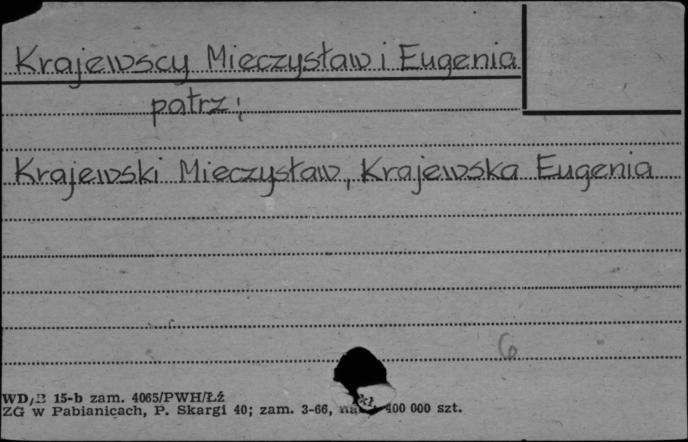 Krajewscy Mieczysław i Eugenia
patrz:
Krajewski Mieczysław, Krajewska Eugenia
6
WD/B 15-b zam. 4065/PWH/ŁŹ
ZG w Pabianicach, P. Skargi 40; zam. 3-66, 400 000 szt.